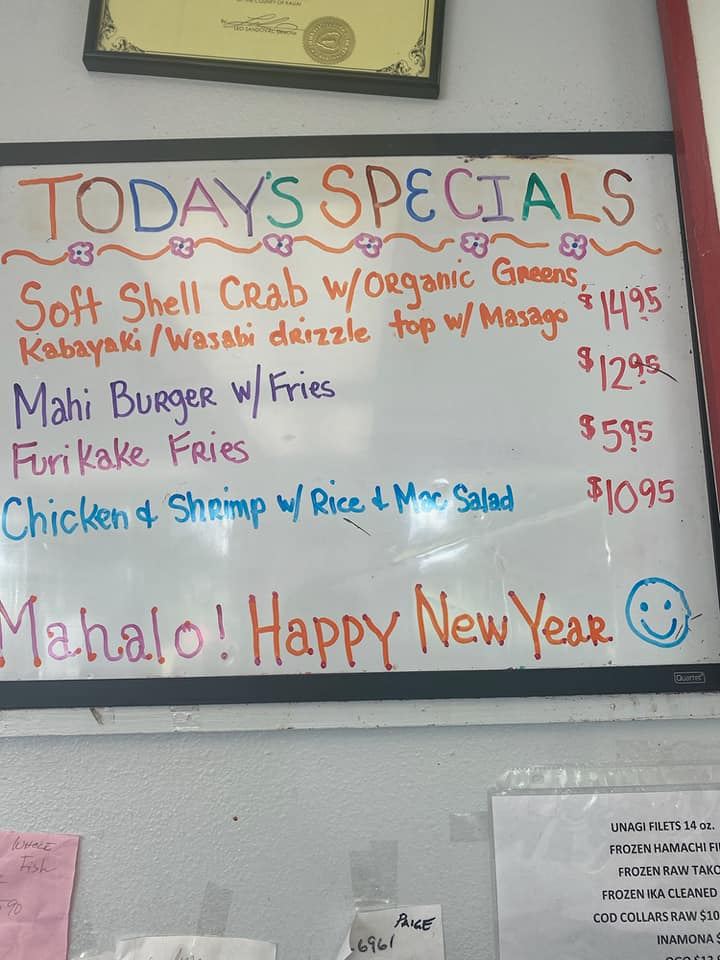 OF THE COUNTY OF KAUAI
By
LEO SANDOVAL
TODAY'S SPECIALS
Soft Shell CRab w/ORganic GReens,
Kabayaki/Wasabi dRizzle top w/ Masago $1495
Mahi BURgeR w/ Fries $1295
Furikake FRies $595
Chicken & ShRimp w/ Rice & Mac Salad $1095
Mahalo! Happy New YeaR
Quartet
WHOLE
Fish
UNAGI FILETS 14 oz.
FROZEN HAMACHI FI
FROZEN RAW TAKO
FROZEN IKA CLEANED
COD COLLARS RAW $10
INAMONA $
PAIGE
.6961